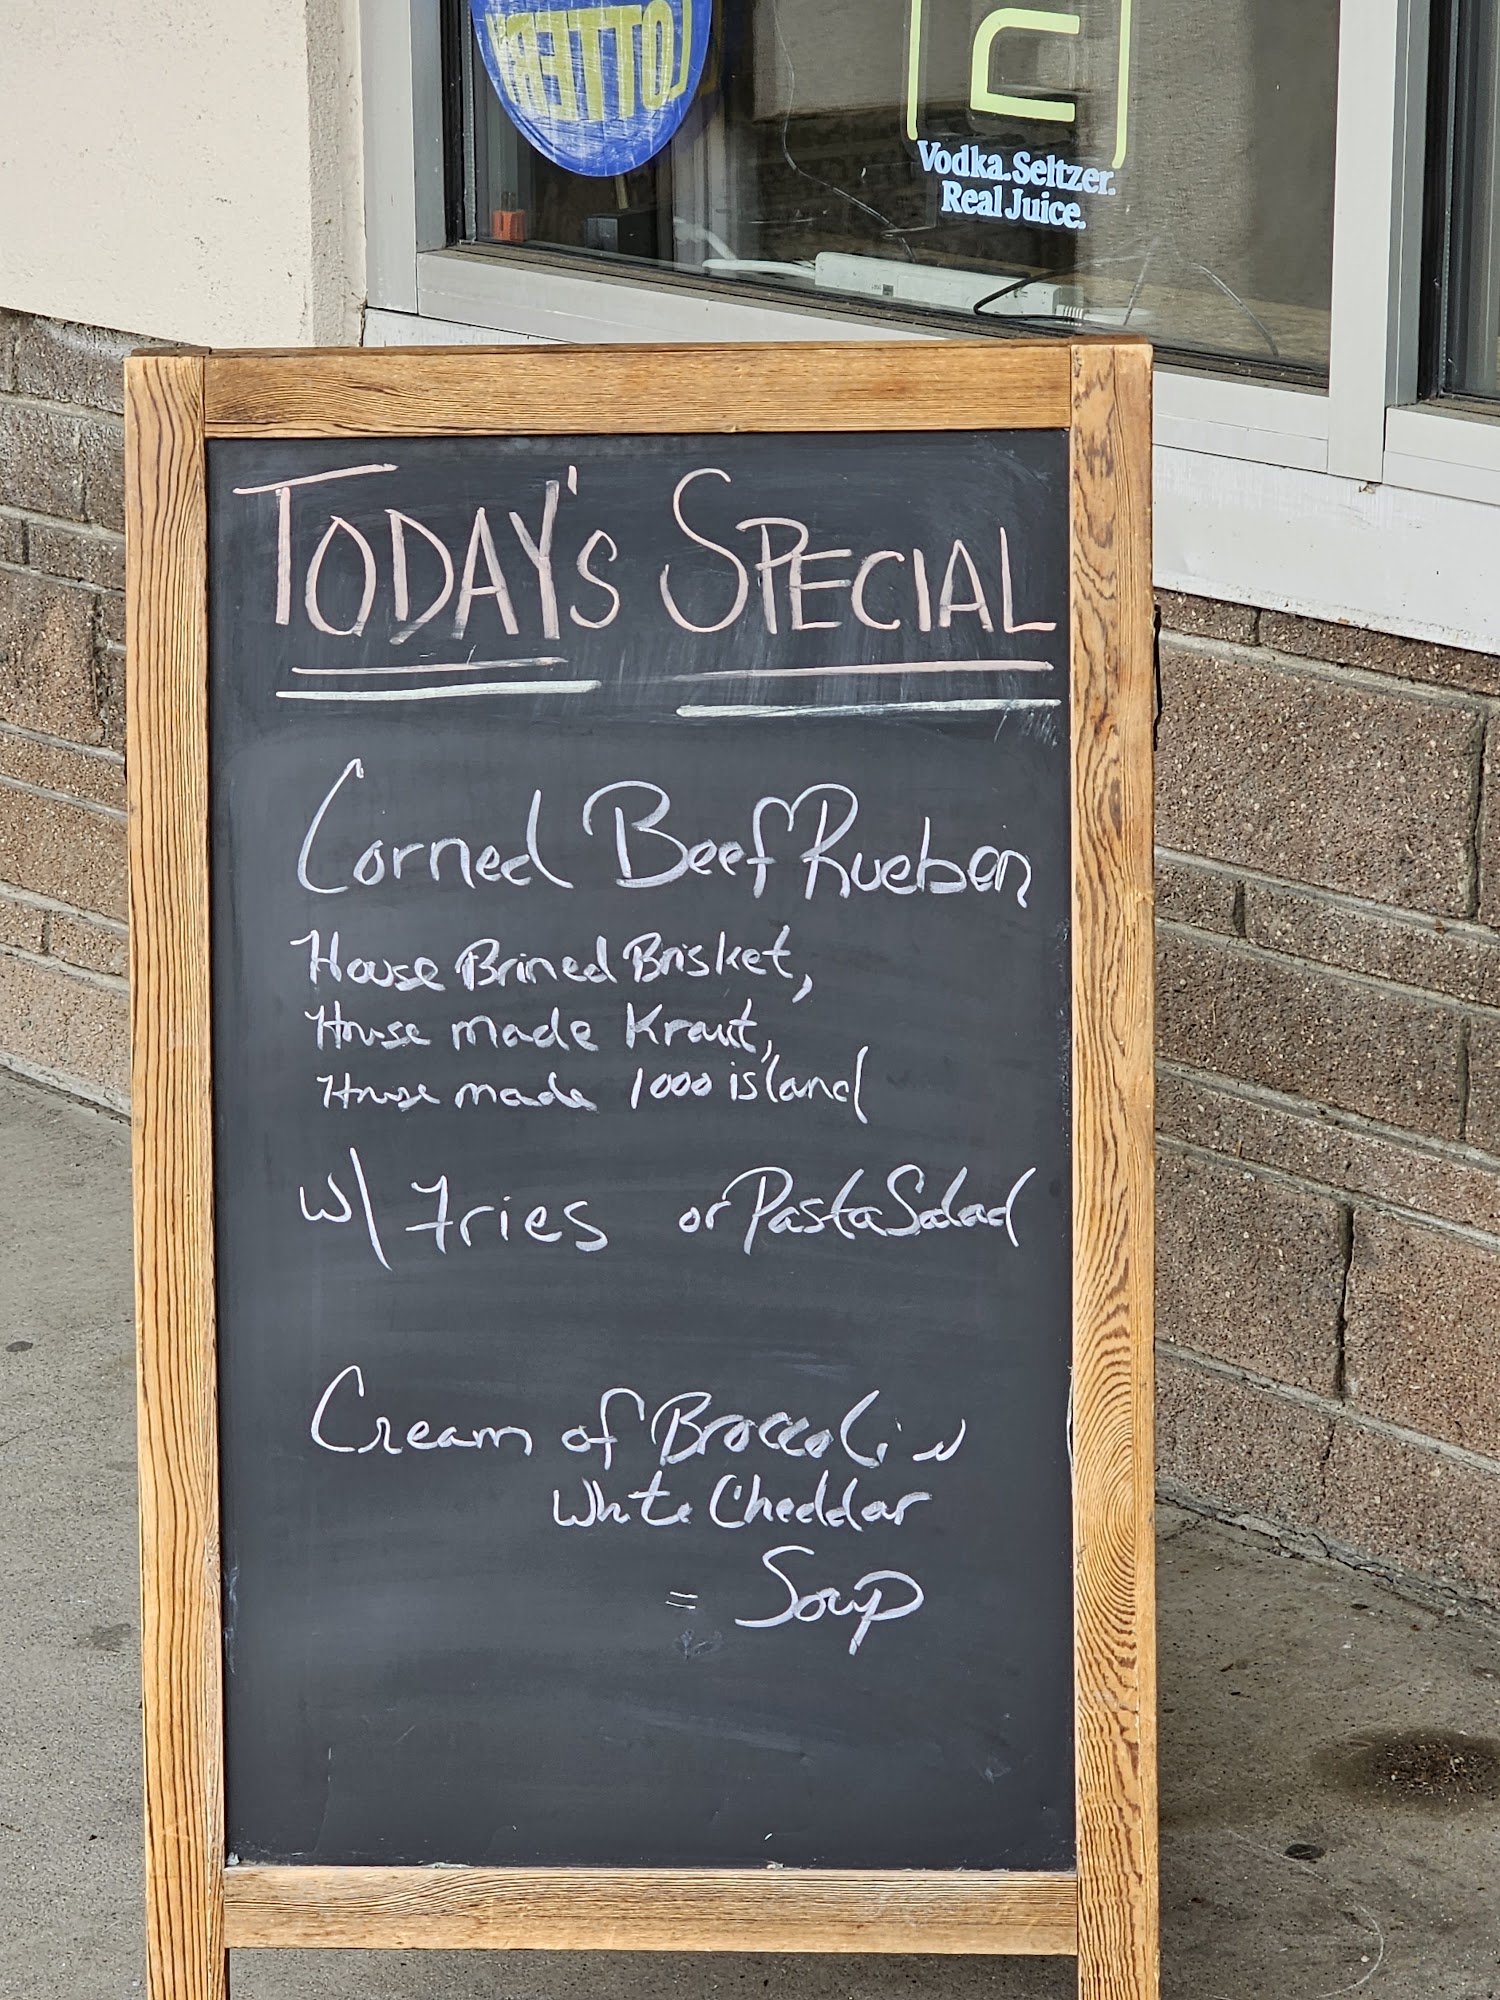 LOTTERY
Vodka. Seltzer.
Real Juice.
TODAY'S SPECIAL
Corned Beef Rueben
House Brined Brisket,
House made Kraut,
House made 1000 island
w/ Fries or Pasta Salad
Cream of Broccoli N
White Cheddar
= Soup